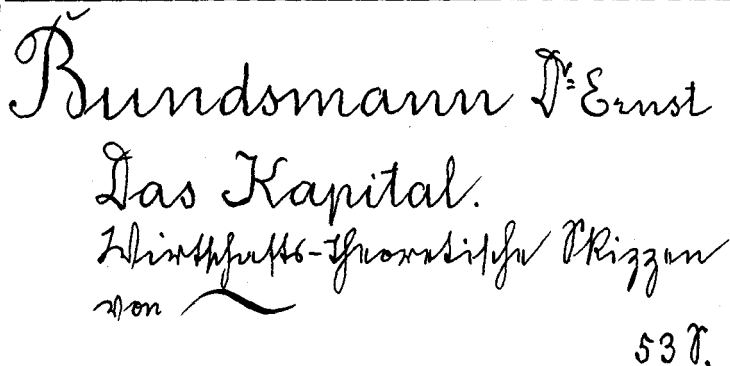 Bundsmann Dr. Ernst
Das Kapital.
Wirtschafts-theoretische Skizzen
von
53 S.